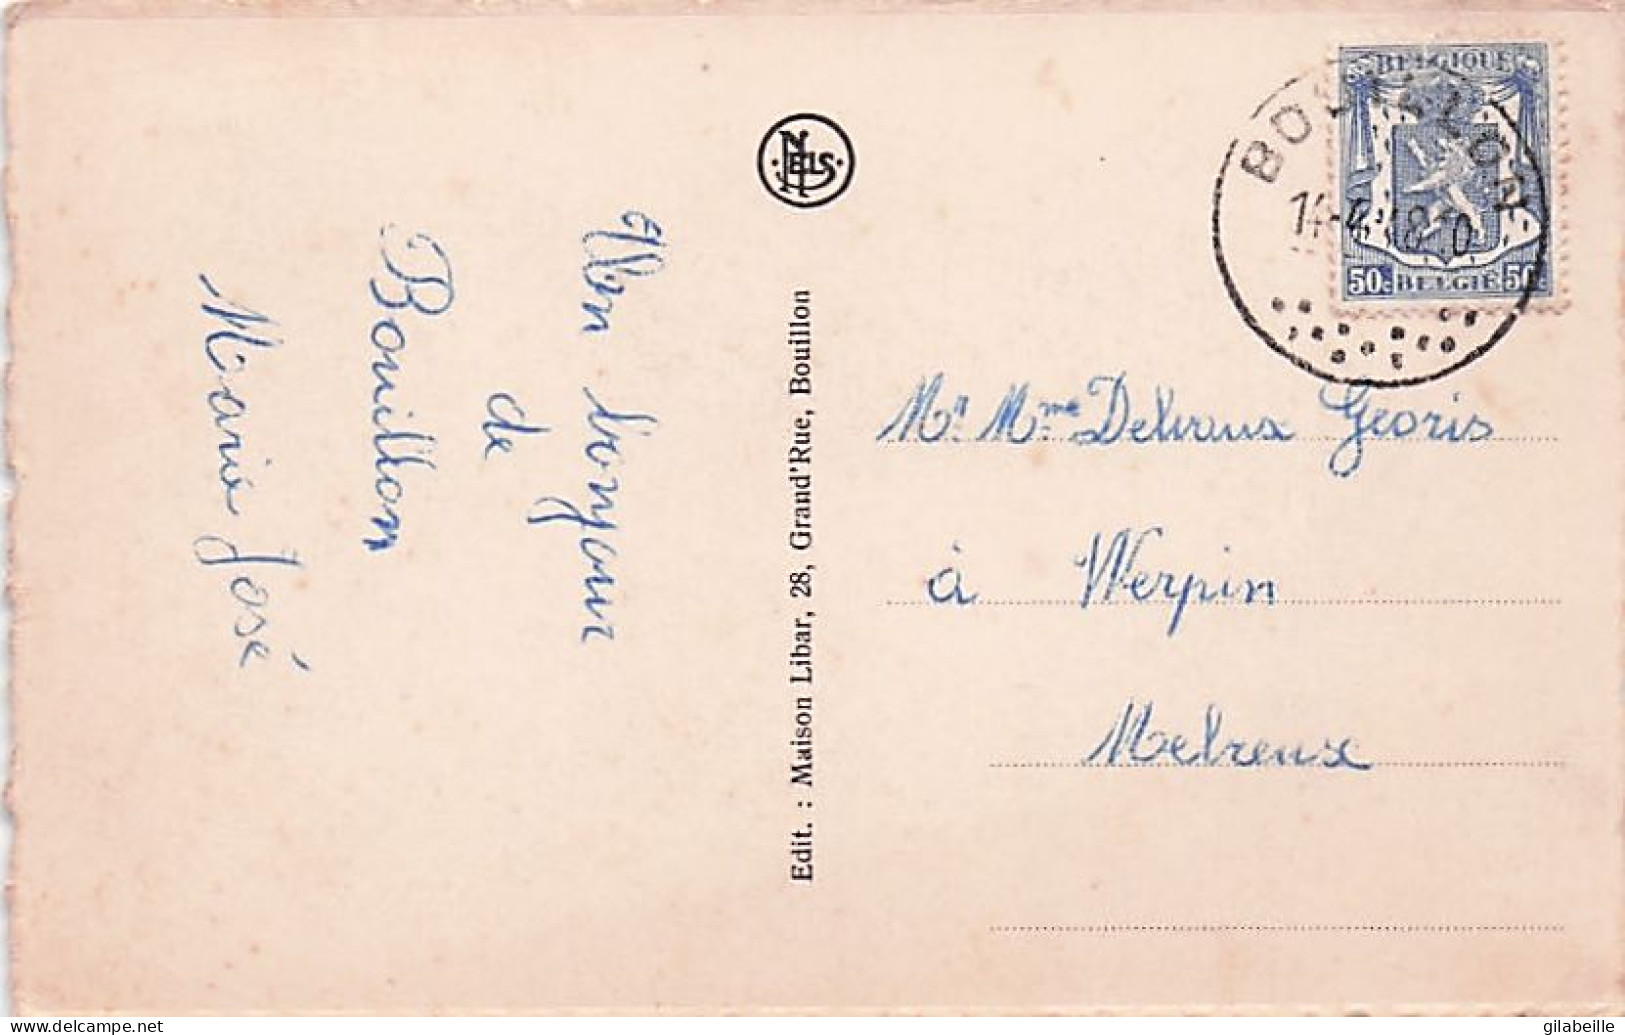 Un bonjour
de
Bouillon
Marie José
NELS
Edit. : Maison Libar, 28, Grand'Rue, Bouillon
BELGIQUE
50c BELGIE 50c
BOUILLON
Mr Mme Delvaux Georis
à Werpin
Melreux
www.delcampe.net
gilabeille